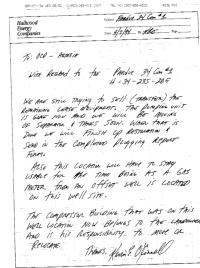 Hallwood
Energy
Companies
Pardue 34 Com #2
To: OCD - Artesia
With Regard to the Pardue 34 Com #2
We are still trying to sell (transfer) the
remaining lease equipment. The pumping unit
is gone now and we will be moving
separator & tanks soon. When that is
done we will finish up restoration &
send in the completed plugging report
form.
Also this location will have to stay
usable for the time being as a gas
meter from an offset well is located
on this well site.
The compressor building that was on this
well location now belongs to the landowner
and is his responsibility to move or
relocate.
Thanks, Kevin E O'Connell